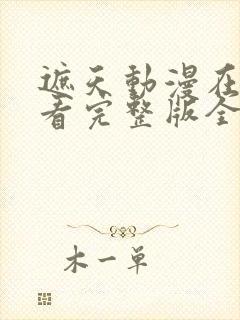 遮天動漫在
看完整版全
木一单